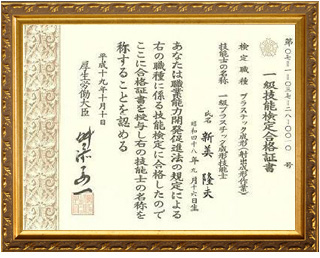 第〇七-一-〇三七-二八-〇〇〇一号
一級技能検定合格証書
検定職種 プラスチック成形(射出成形作業)
技能士の名称 一級プラスチック成形技能士
氏名 新美 隆夫
昭和四十八年九月十六日生
あなたは職業能力開発促進法の規定による
右の職種に係る技能検定に合格したので
ここに合格証書を授与し右の技能士の名称を
称することを認める
平成十九年十月十日
厚生労働大臣